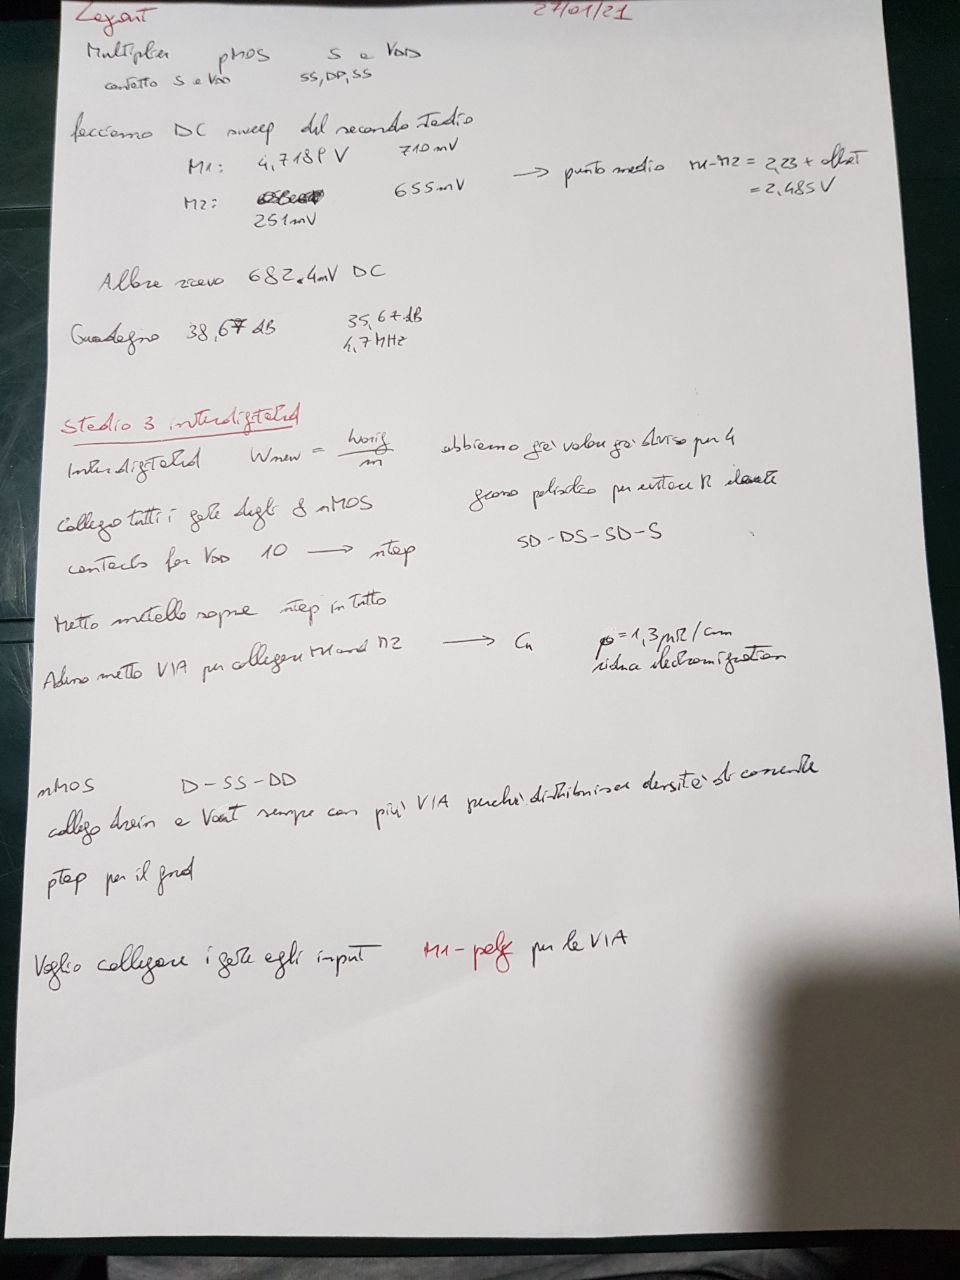 Layout 27/01/21
Multiplier pMOS S a VDD
contatto S a VDD SS, DD, SS
facciamo DC sweep del secondo stadio
M1: 4,718 V 710mV
M2: 655mV → punto medio M1-M2 = 2,23 + offset
251mV = 2,485V
Allora 682.4mV DC
Guadagno 38,67 dB 35,67 dB
4,7 MHz
Stadio 3 interdigitated
Interdigitated Wnew = Worig / m abbiamo già valori già diviso per 4
Collego tutti i gate degli 8 nMOS per evitare R elevate
contacts for VDD 10 → ntap SD-DS-SD-S
Metto metallo sopra ntap in tutto
Adesso metto VIA per collegare M1 and M2 → Cu ρ=1,3μΩ/cm
riduce electromigration
nMOS D-SS-DD
collego drain a Vout sempre con più VIA perché distribuisce densità di corrente
ptap per il gnd
Voglio collegare i gate agli input M1-poly per le VIA